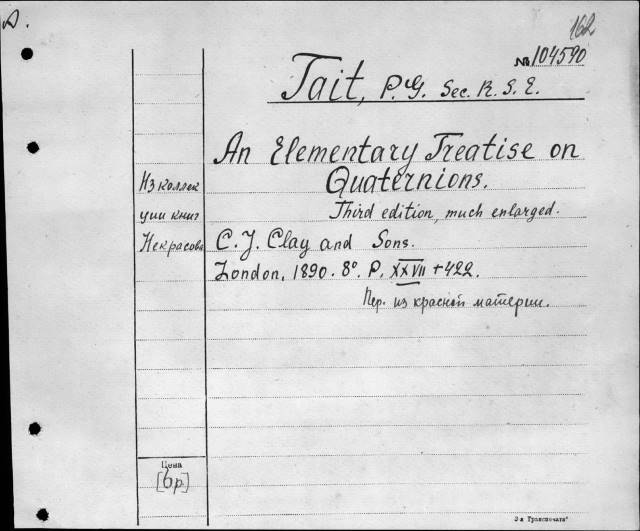 D.
162
№ 104590
Tait, P. G. Sec. R. S. E.
An Elementary Treatise on
Quaternions.
Third edition, much enlarged.
Из коллек
ции книг
Некрасова
C. J. Clay and Sons.
London, 1890. 8°. P. XXVII + 422.
Пер. из красной материи.
Цена
[6 р]
З-я Транспечать"